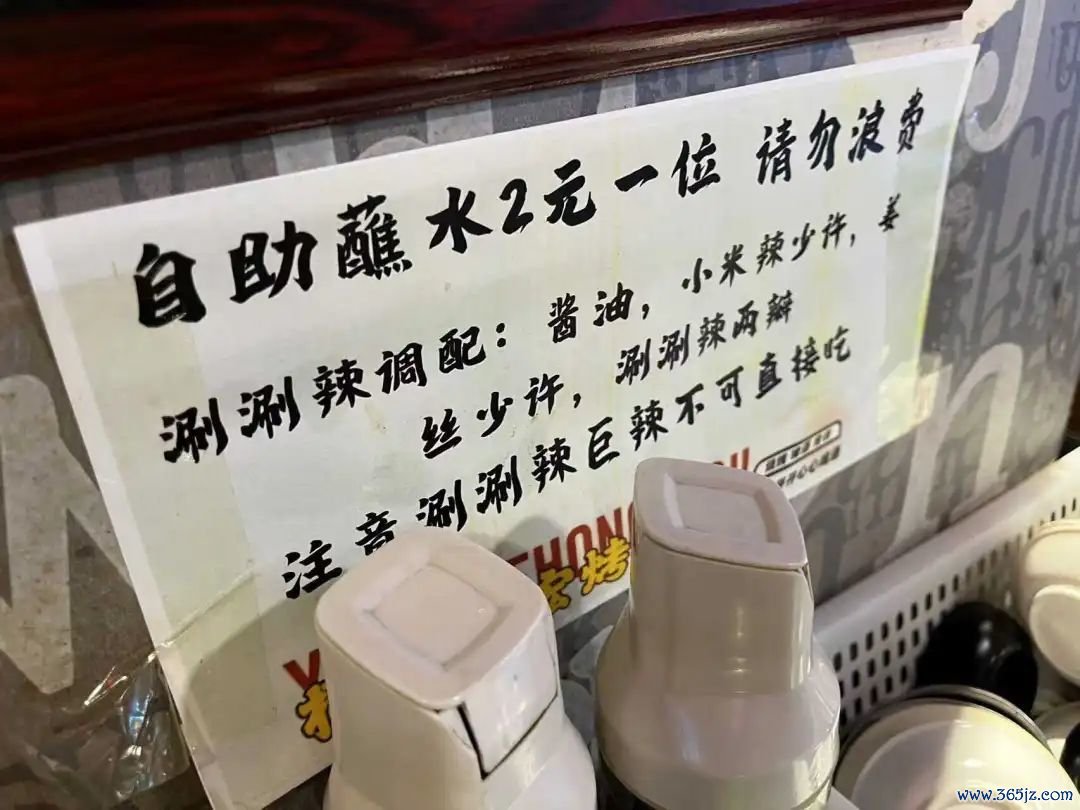 自助蘸水2元一位 请勿浪费
涮涮辣调配：酱油，小米辣少许，姜
丝少许，涮涮辣两瓣
注意涮涮辣巨辣不可直接吃
烤
www.365jz.com